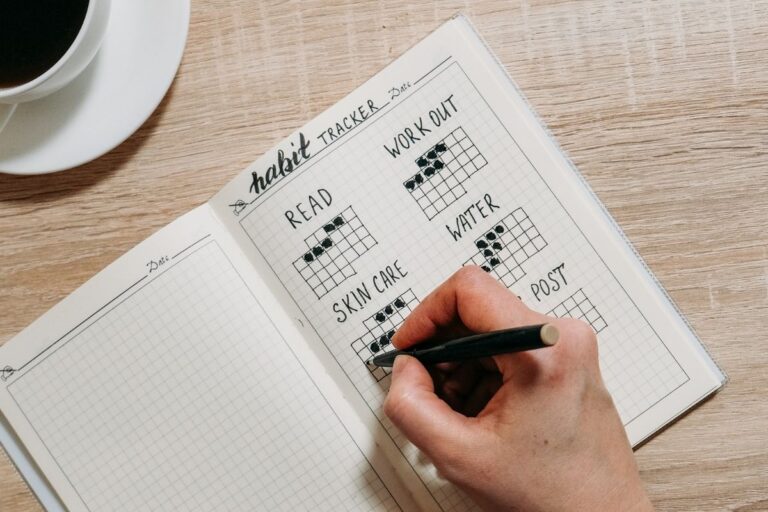 habit TRACKER
Date
READ
WORK OUT
SKIN CARE
WATER
POST
Date